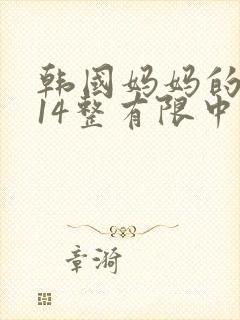 韩国妈妈的
14整有限中
章漪